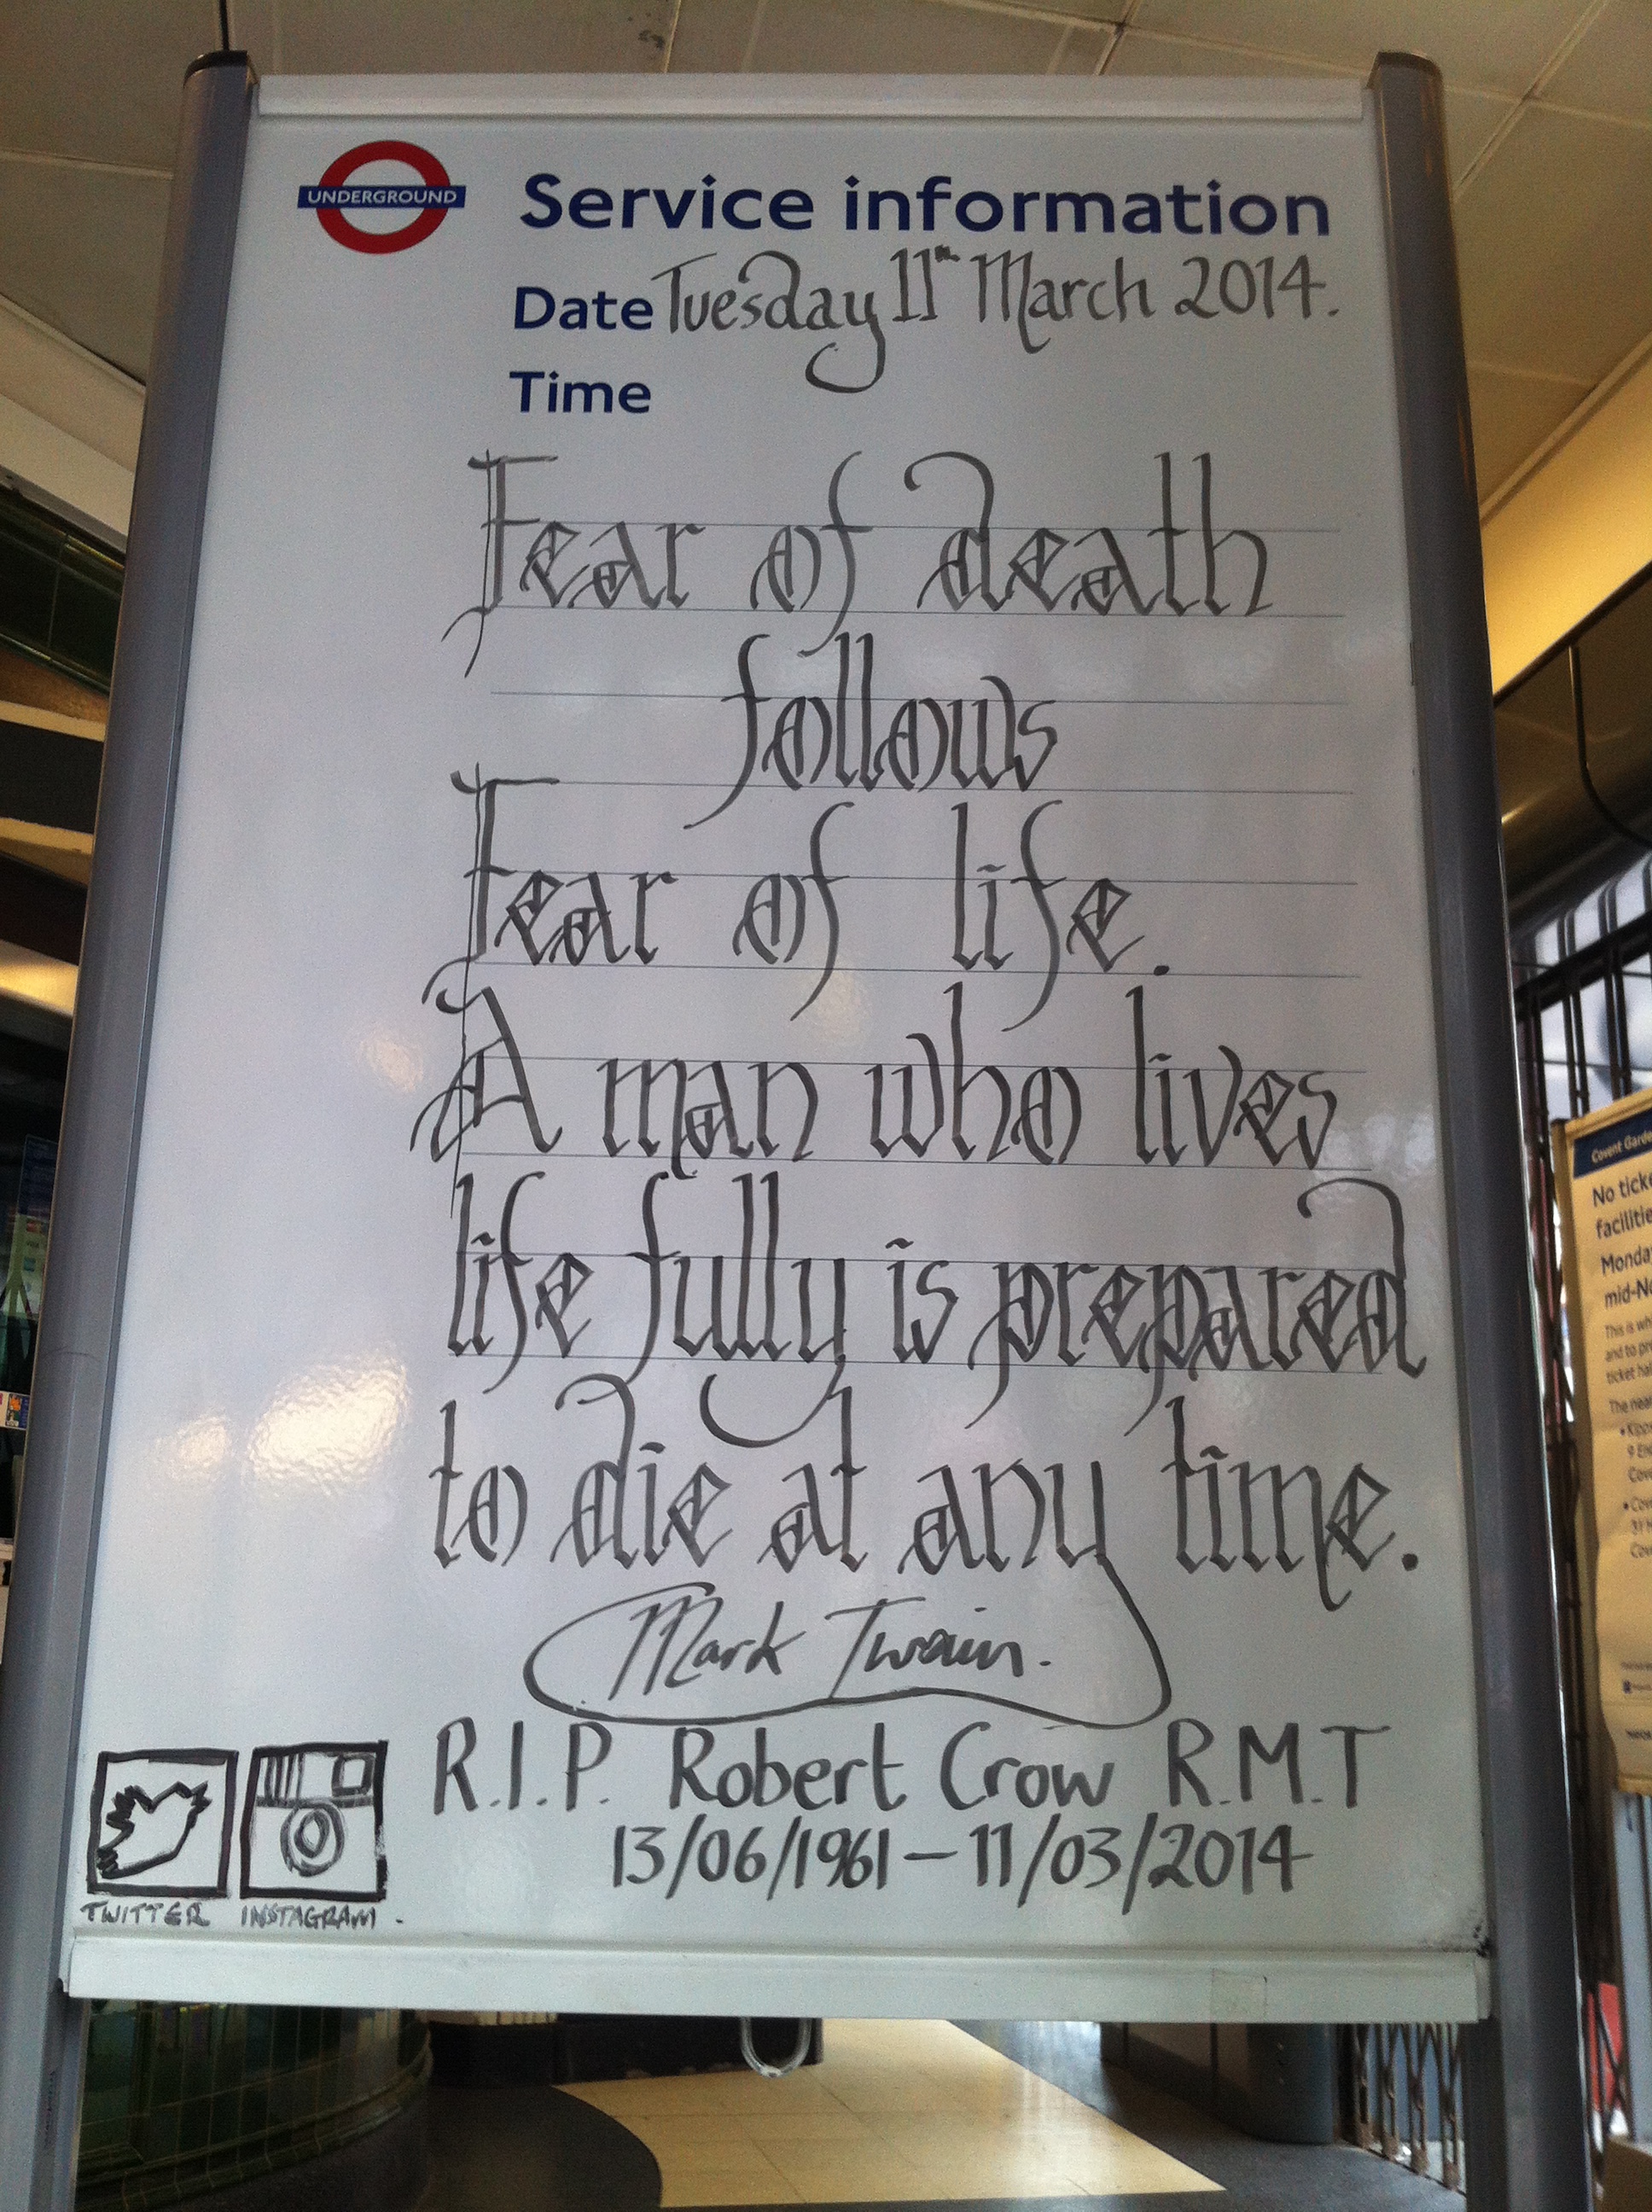 UNDERGROUND
Service information
Date Tuesday 11th March 2014.
Time
Fear of death
follows
Fear of life.
A man who lives
life fully is prepared
to die at any time.
Mark Twain.
R.I.P. Robert Crow R.M.T
13/06/1961 – 11/03/2014
TWITTER INSTAGRAM.
Covent Garde
No ticke
facilitie
Monda
mid-No
This is wh
and to pr
ticket ha
The near